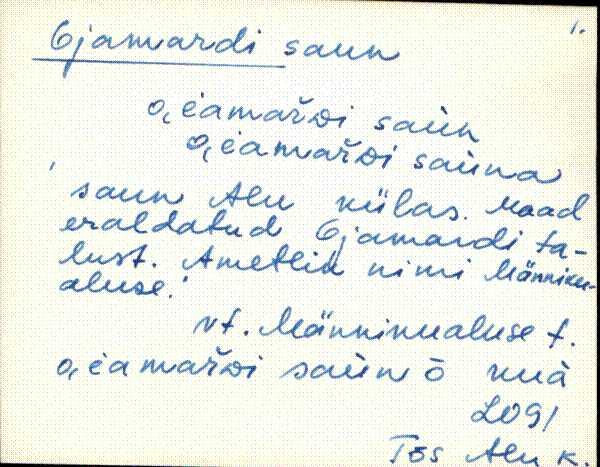 1.
Ojamardi saun
o̭i̯amaŕᴅi saùn
o̭i̯amaŕᴅi saùna
'saun Alu külas. Maad
eraldatud Ojamardi ta-
lust. Ametlik nimi Männiku-
aluse.'
vt. Männikualuse t.
o̭i̯amaŕᴅi saùn ō
Tõs Alu k.